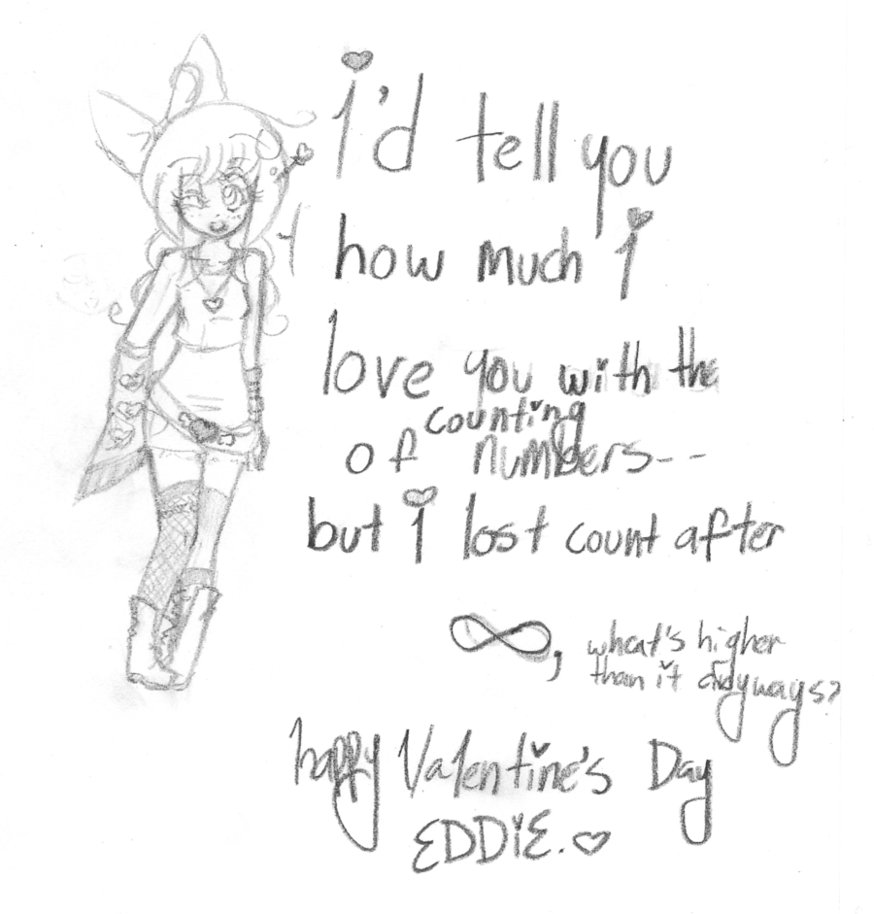 i'd tell you
how much i
love you with the
counting
of numbers--
but i lost count after
∞, what's higher
than it didyways?
happy Valentine's Day
EDDiE. ♡